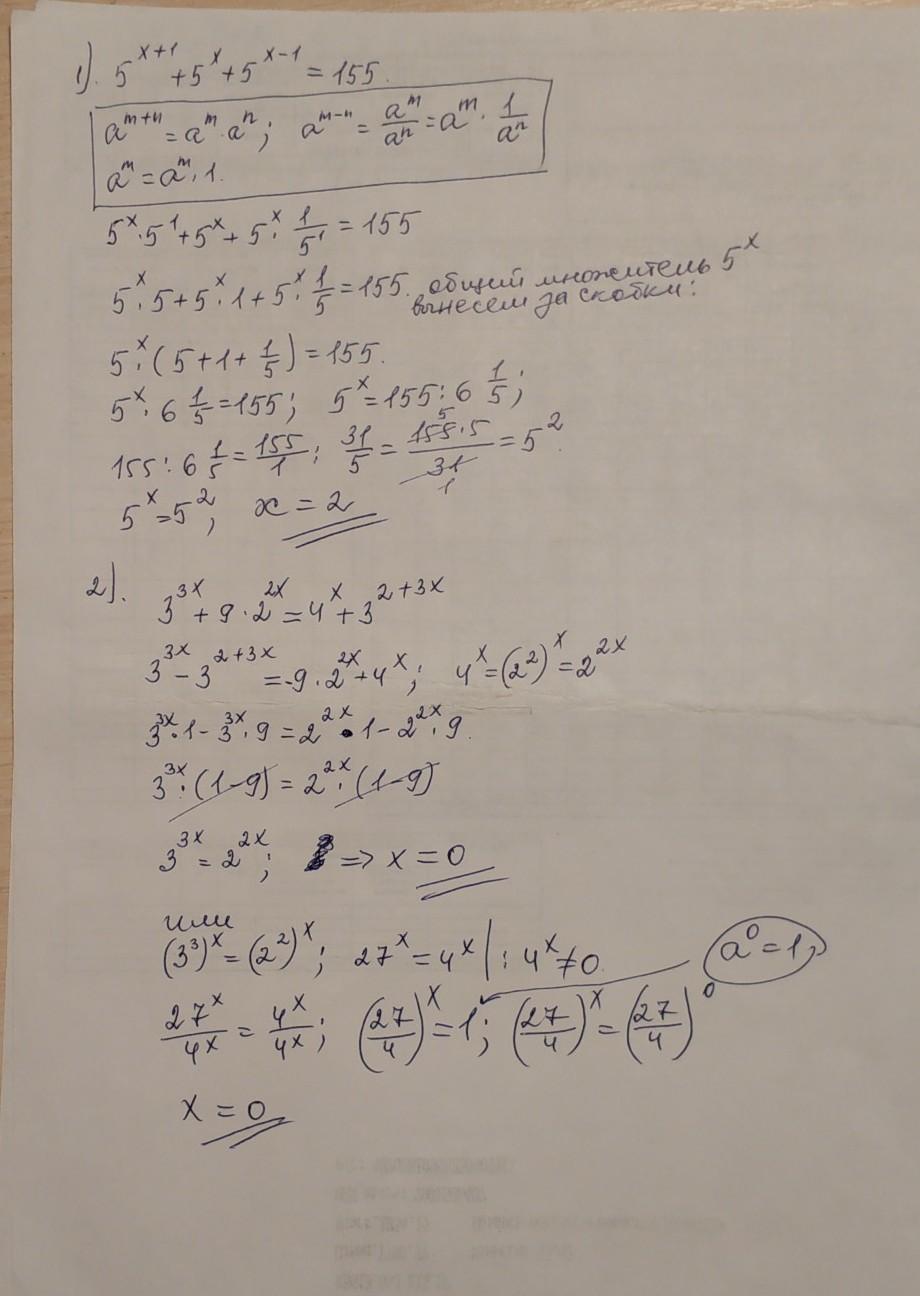 1). 5^(x+1) + 5^x + 5^(x-1) = 155.
a^(m+n) = a^m · a^n; a^(m-n) = a^m/a^n = a^m · 1/a^n
a^m = a^m · 1.
5^x · 5^1 + 5^x + 5^x · 1/5^1 = 155
5^x · 5 + 5^x · 1 + 5^x · 1/5 = 155. общий множитель 5^x
вынесем за скобки:
5^x · (5 + 1 + 1/5) = 155.
5^x · 6 1/5 = 155; 5^x = 155 : 6 1/5;
155 : 6 1/5 = 155/1 : 31/5 = 155 · 5/31 = 5^2.
5 1
5^x = 5^2; x = 2
2). 3^(3x) + 9 · 2^(2x) = 4^x + 3^(2+3x)
3^(3x) - 3^(2+3x) = -9 · 2^(2x) + 4^x; 4^x = (2^2)^x = 2^(2x)
3^(3x) · 1 - 3^(3x) · 9 = 2^(2x) · 1 - 2^(2x) · 9.
3^(3x) · (1-9) = 2^(2x) · (1-9)
3^(3x) = 2^(2x); => x = 0
или
(3^3)^x = (2^2)^x; 27^x = 4^x | : 4^x ≠ 0. a^0 = 1;
27^x/4^x = 4^x/4^x; (27/4)^x = 1; (27/4)^x = (27/4)^0
x = 0